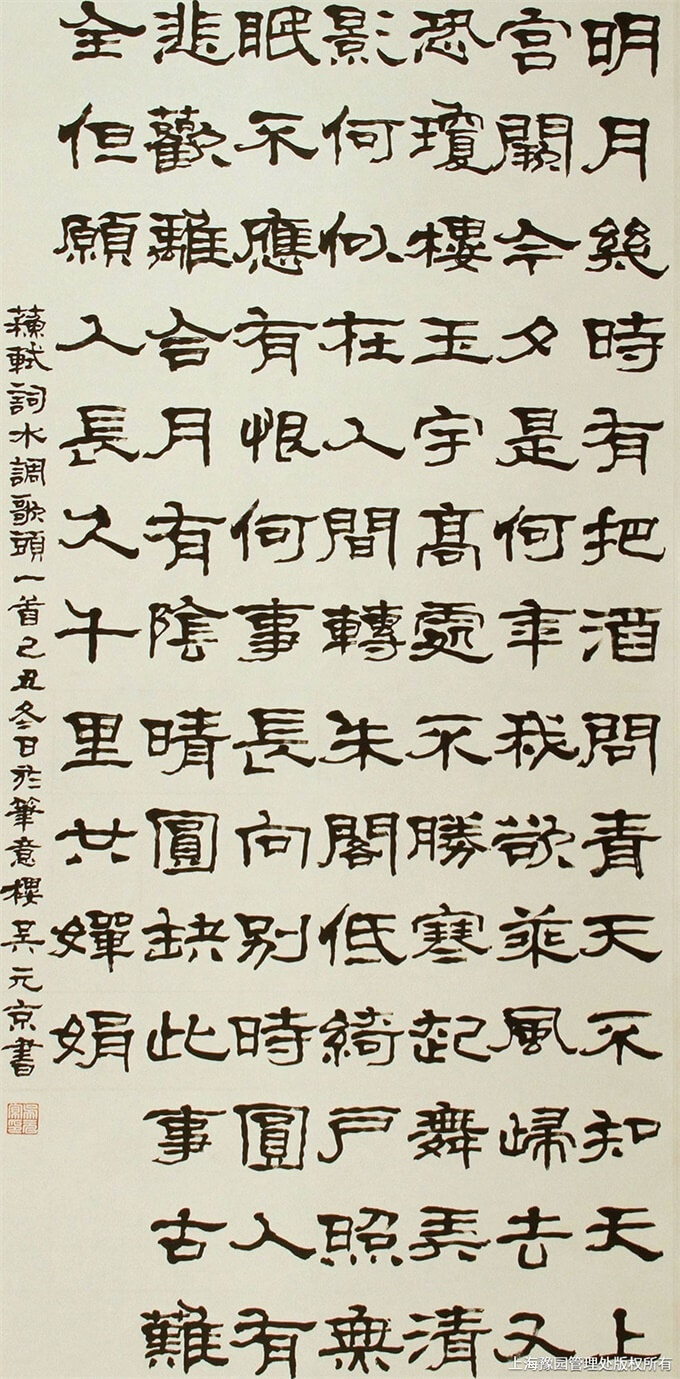 明月幾時有把酒問青天不知天上
宮闕今夕是何年我欲乘風歸去又
恐瓊樓玉宇高處不勝寒起舞弄清
影何似在人間轉朱閣低綺戶照無
眠不應有恨何事長向別時圓人有
悲歡離合月有陰晴圓缺此事古難
全但願人長久千里共嬋娟
蘇軾詞水調歌頭一首己丑冬日於筆意樓吳元京書
上海豫园管理处版权所有